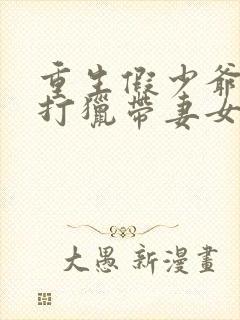 重生假少爺
打獵帶妻女
大愚 新漫畫